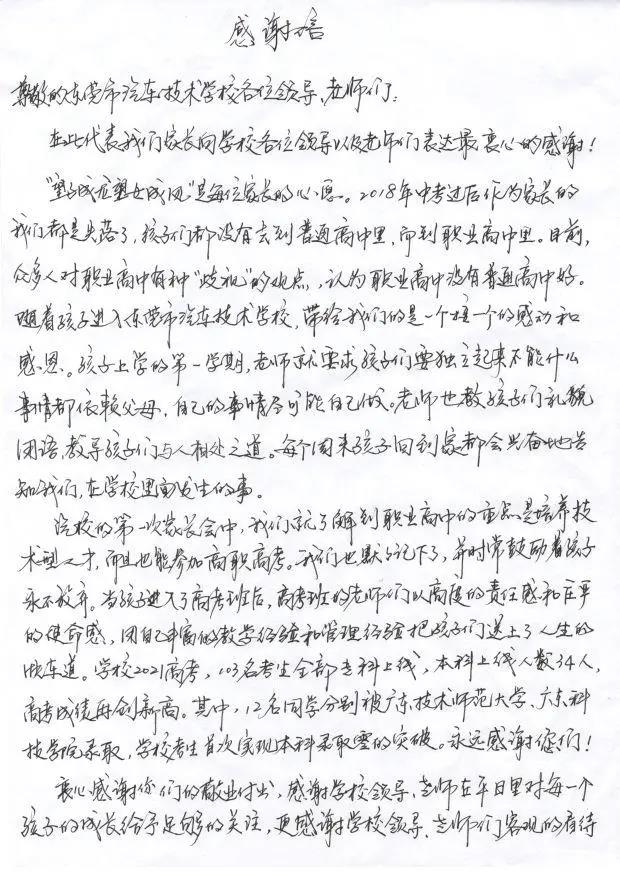 感谢信
尊敬的东莞市汽车技术学校各位领导、老师们:
在此代表我们家长向学校各位领导以及老师们表达最衷心的感谢!
“望子成龙望女成凤”是每位家长的心愿。2018年中考过后作为家长的
我们都是失落了,孩子们都没有去到普通高中里,而到职业高中里。目前,
众多人对职业高中有种“歧视”的观点,认为职业高中没有普通高中好。
随着孩子进入东莞市汽车技术学校,带给我们的是一个接一个的感动和
感恩。孩子上学的第一学期,老师就要求孩子们要独立起来不能什么
事情都依赖父母,自己的事情尽可能自己做。老师也教孩子们礼貌
用语,教导孩子们与人相处之道。每个周末孩子回到家都会兴奋地告
知我们,在学校里面发生的事。
学校的第一次家长会中,我们就了解到职业高中的重点是培养技
术型人才,而且也能参加高职高考。我们也默默记下了,并时常鼓励着孩子
永不放弃。当孩子进入了高考班后,高考班的老师们以高度的责任感和庄严
的使命感,用自己丰富的教学经验和管理经验把孩子们送上了人生的
快车道。学校2021高考,103名考生全部专科上线,本科上线人数34人,
高考成绩再创新高。其中,12名同学分别被广东技术师范大学、广东科
技学院录取,学校考生首次实现本科录取零的突破。永远感谢您们!
衷心感谢你们的敬业付出,感谢学校领导、老师在平日里对每一个
孩子的成长给予足够的关注,更感谢学校领导、老师们客观的看待